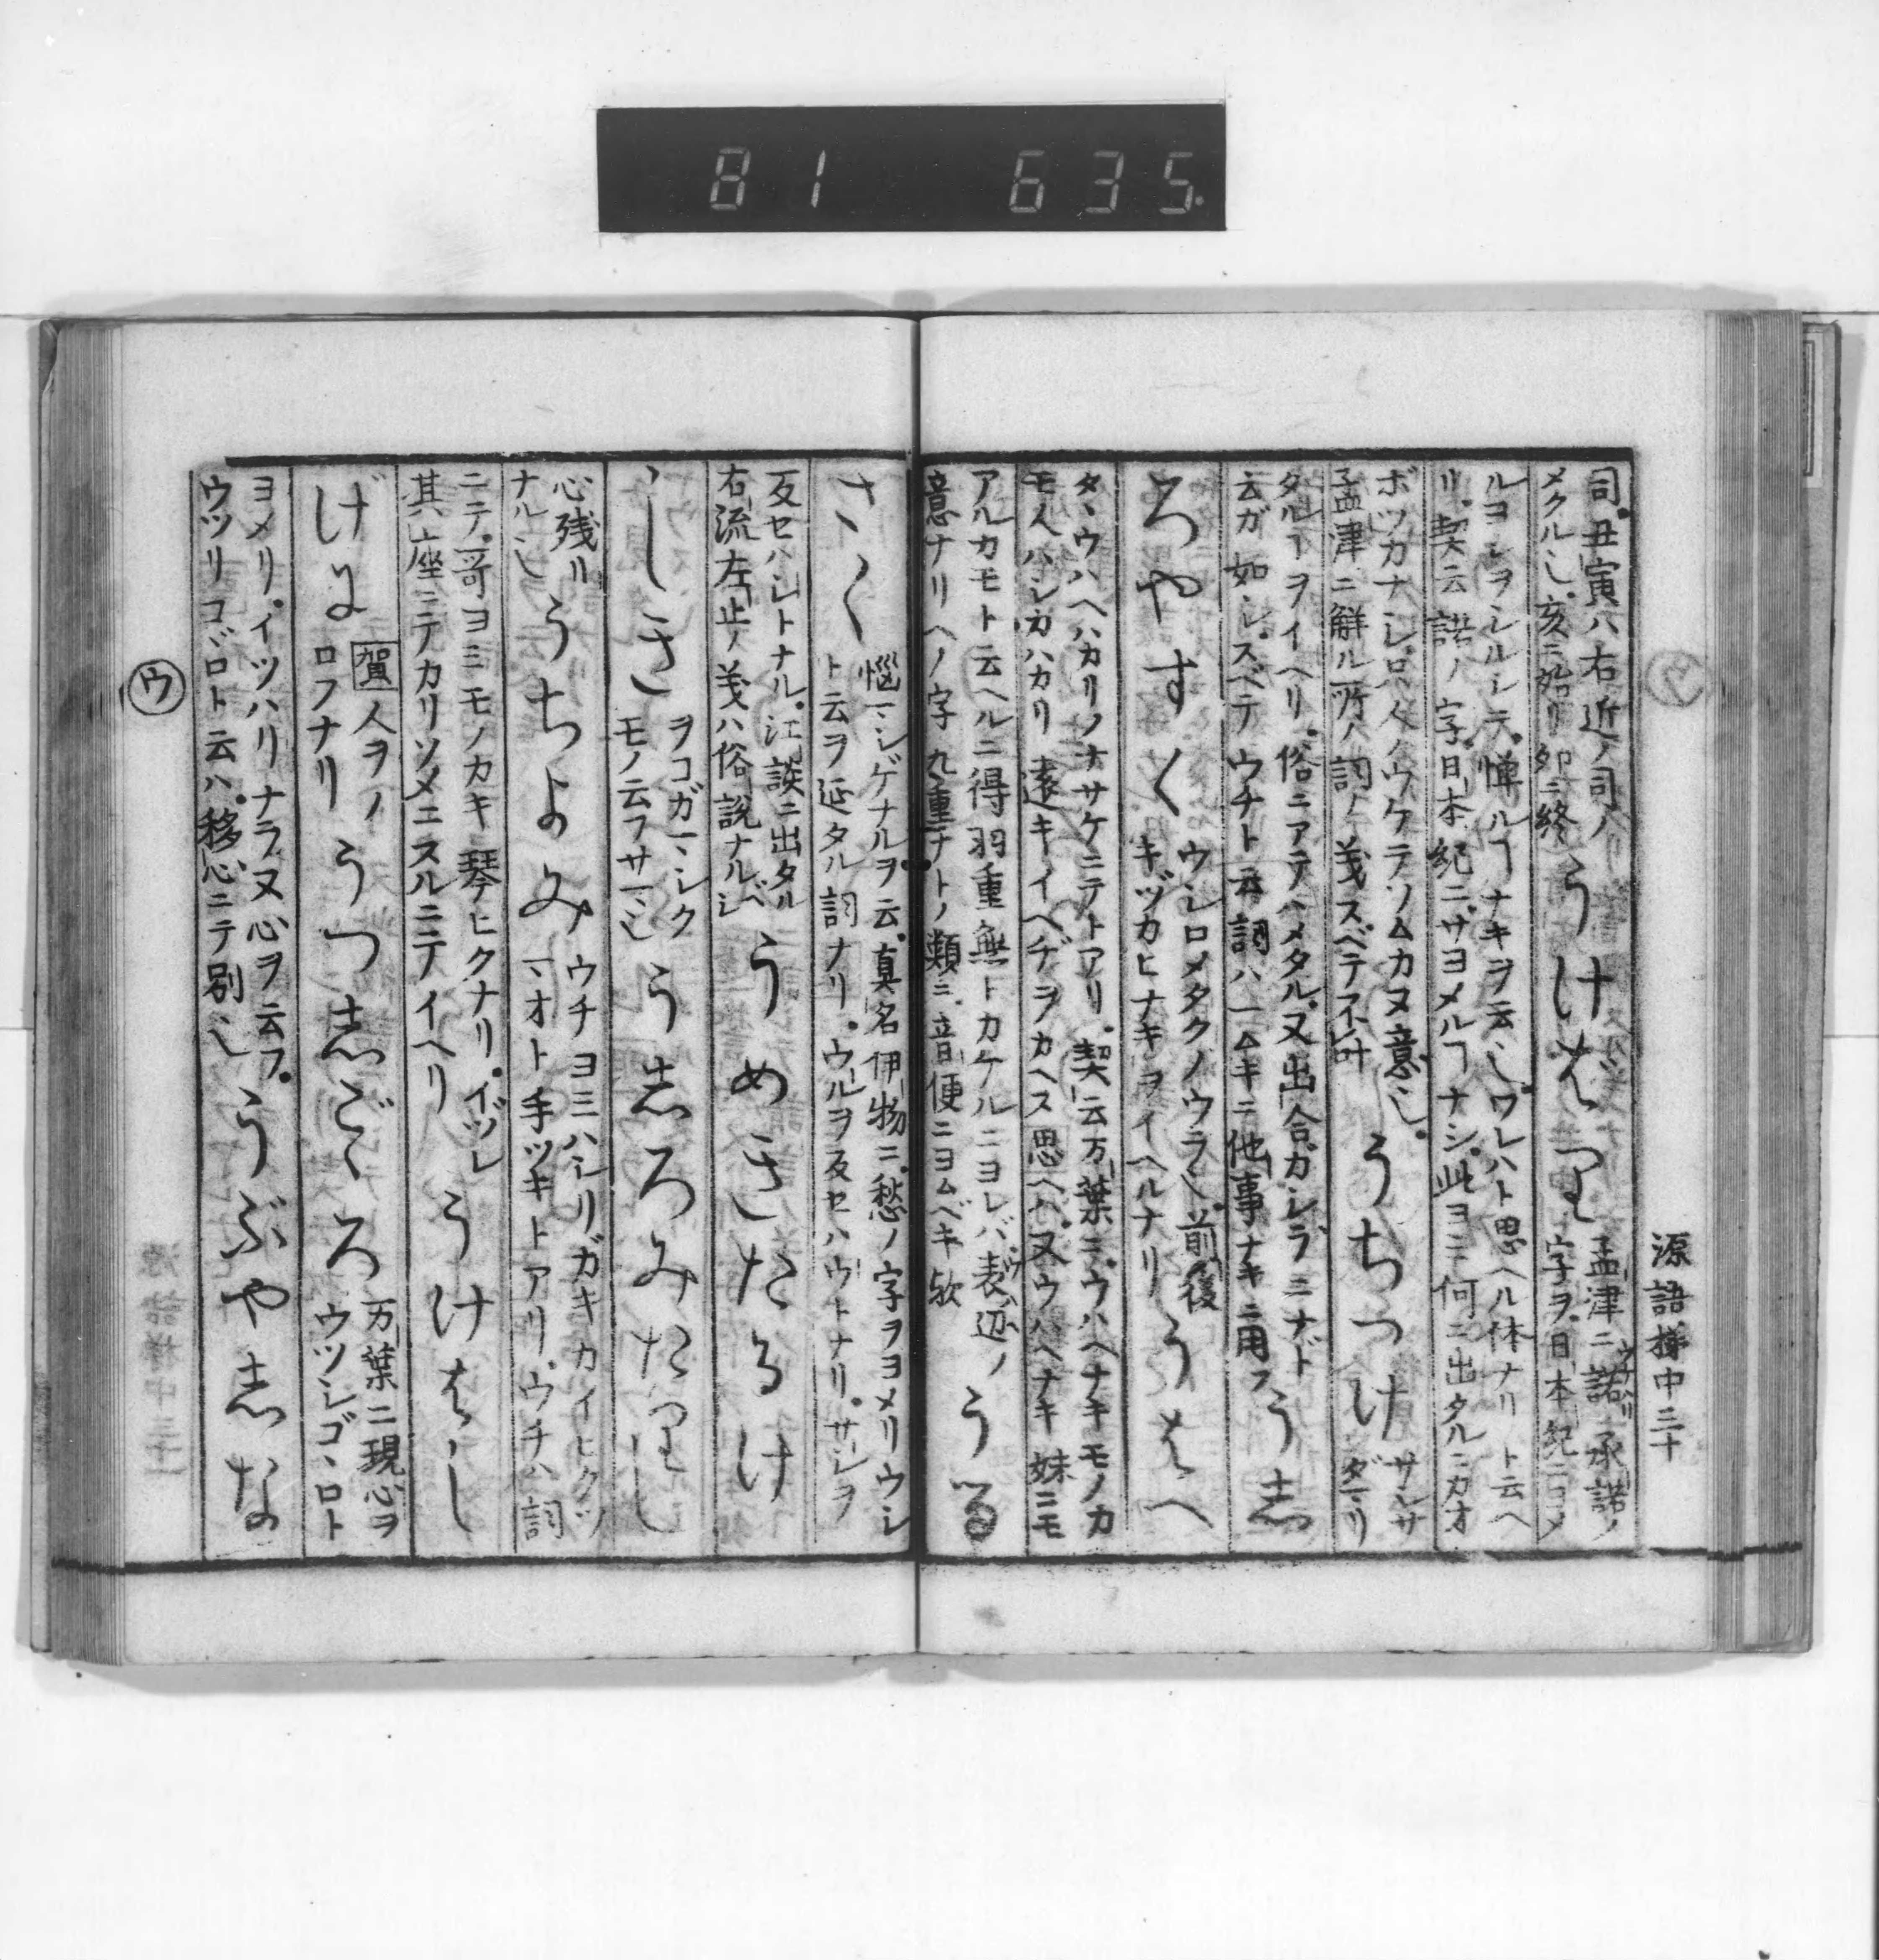 81 635
源語梯中三十
司。丑寅ハ右近ノ司ノ
メクル也。亥ニ始リ卯ニ終
うけばり
孟津ニ諾ウケハリ承諾ノ
字ヲ。日本紀ニヨメ
ルヨシヲシルシテ。憚ルヿナキヲ云也。ワレハト思ヘル体ナリト云ヘ
リ。契云諾ノ字。日本紀ニサヨメルヿナシ。此ヨミ何ニ出タルニカオ
ボツカナシ。ロ人ノウケテソムカヌ意也。
孟津ニ解ル所ノ詞ノ義スベテ不叶
うちつけ
サシサ
ダマリ
タルヿヲイヘリ。俗ニアテハメタル。又出合ガシラミナド
云ガ如シ。スベテウチト云詞ハ一ムキニ他事ナキニ用フ
うし
ろやすく
ウシロメタクノウラ也。前後
キヅカヒナキヲイヘルナリ
うはへ
タヾウハヘハカリノナサケニテトアリ。契云万葉ニ。ウハヘナキモノカ
モ人ハシカハカリ遠キイヘヂヲカヘス思ヘハ。又ウハヘナキ妹ニモ
アルカモト云ヘルニ得羽重無トカケルニヨレバ表辺ウハヘノ
意ナリヘノ字九重ナトノ類ニ。音便ニヨムベキ歟
うる
さく
悩マシゲナルヲ云。真名伊物ニ。愁ノ字ヲヨメリウシ
ト云ヲ延タル詞ナリ。ウルヲ反セハウトナリ。サシヲ
反セハシトナル。江談ニ出タル
右流左止ノ義ハ俗説ナルベシ
うめきたるけ
しき
ヲコガマシク
モノ云フサマ也
うしろみたりし
心残リ
ナルシ
うちよみ
ウチヨミハシリガキカイヒクツ
マオト手ツキトアリ。ウチハ詞
ニテ。哥ヨミモノカキ琴ヒクナリ。イヅレ
其座ニテカリソメニスルニテイヘリ
うけはし
げに
賀人ヲノ
ロフナリ
うつしごゝろ
万葉ニ現心ヲ
ウツシゴヽロト
ヨメリ。イツハリナラヌ心ヲ云フ。
ウツリコヾロト云ハ。移心ニテ別也
うぶやしな
ウ